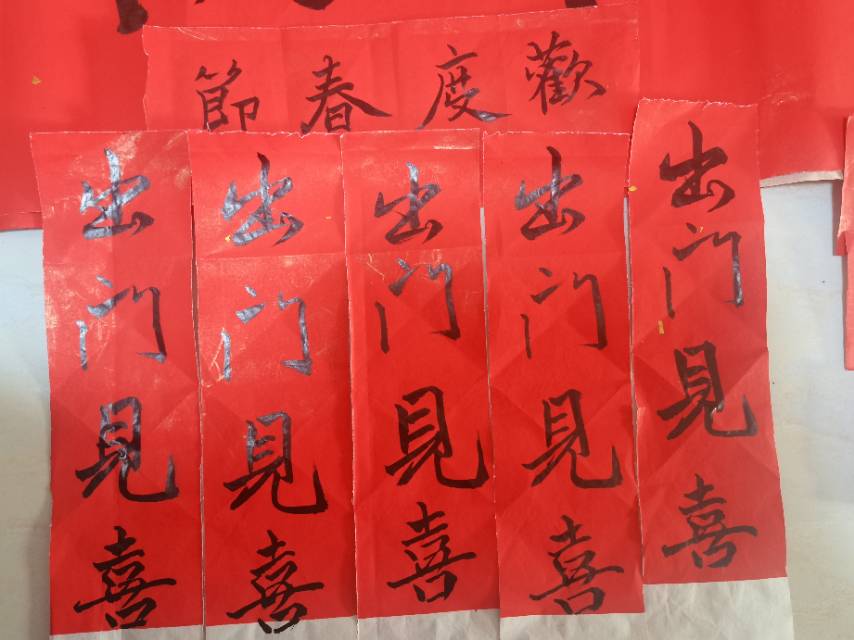 歡度春節
出门見喜
出门見喜
出门見喜
出门見喜
出门見喜